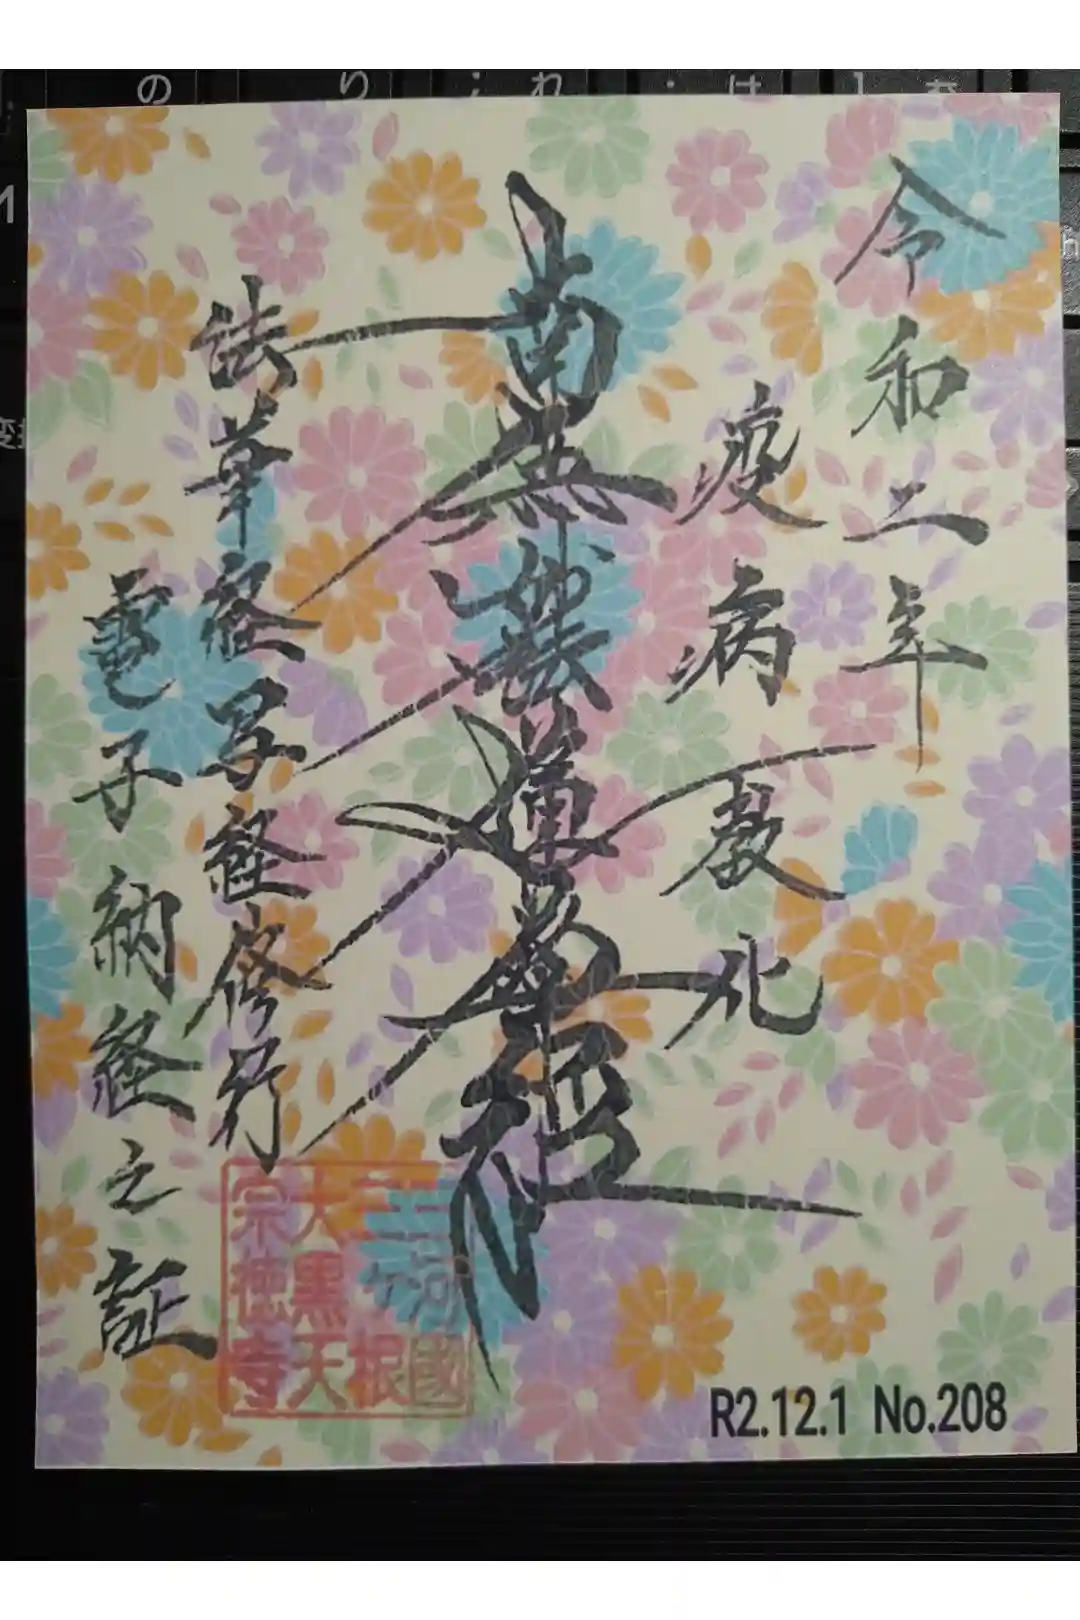 令和二年
疫病教化
南無妙法蓮華経
法華経写経修行
電子納経之証
三河國
三ケ根
大黒天
宗徳寺
R2.12.1 No.208
の り ; れ は